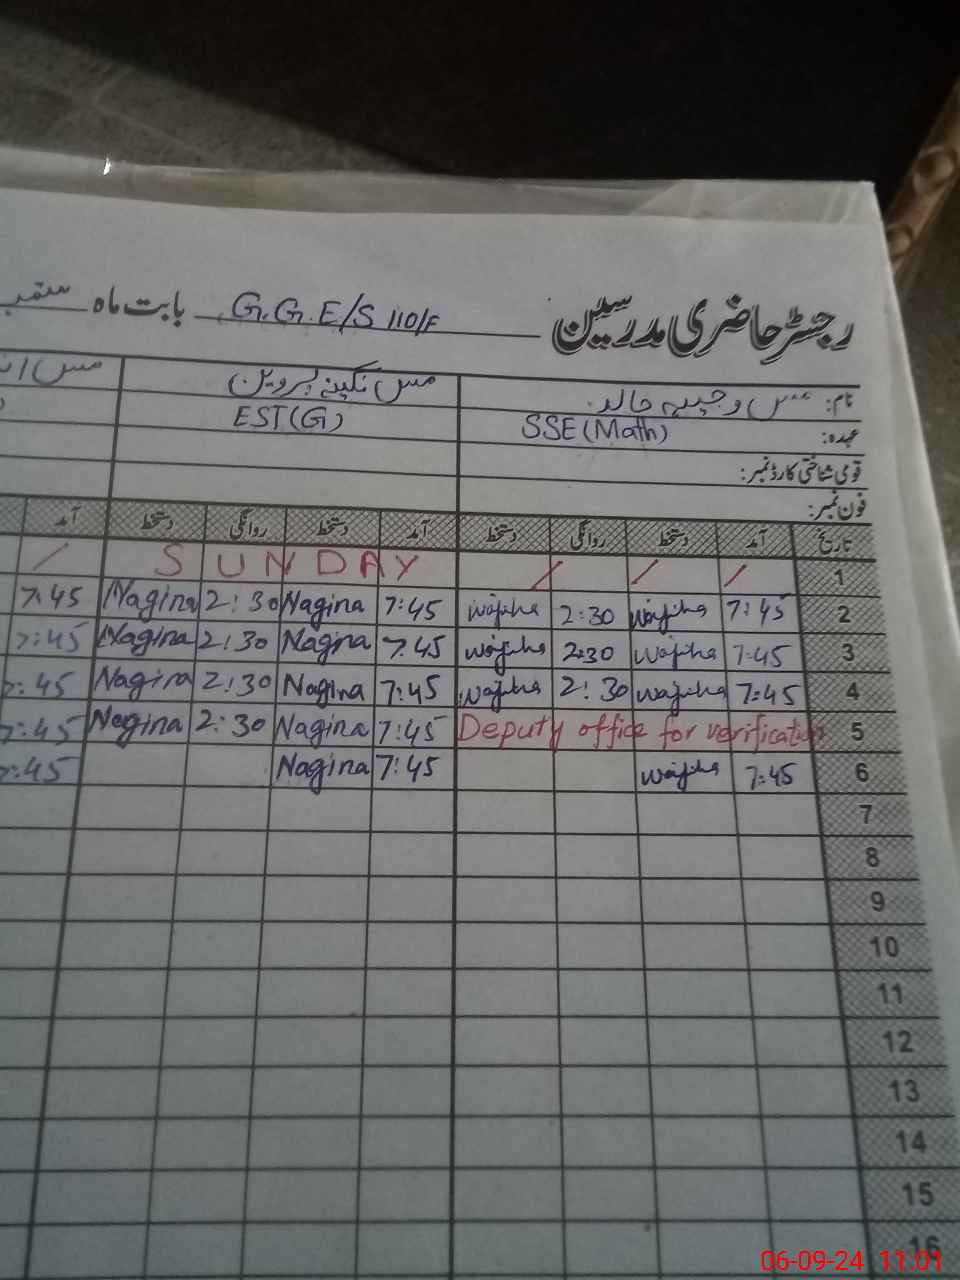 رجسٹر حاضری مدرسین G.G.E/S 110/F بابت ماہ ستمبر
نام: مس وجیہہ خالد مس نگینہ پروین مس
عہدہ: SSE (Math) EST (G)
قومی شناختی کارڈ نمبر:
فون نمبر:
تاریخ آمد دستخط روانگی دستخط آمد دستخط روانگی دستخط آمد
1 / / / SUNDAY /
2 7:45 wajiha 2:30 wajiha 7:45 Nagina 2:30 Nagina 7:45
3 7:45 wajiha 2:30 wajiha 7:45 Nagina 2:30 Nagina 7:45
4 7:45 wajiha 2:30 wajiha 7:45 Nagina 2:30 Nagina 7:45
5 Deputy office for verification 7:45 Nagina 2:30 Nagina 7:45
6 7:45 wajiha 7:45 Nagina 7:45
7
8
9
10
11
12
13
14
15
16
06-09-24 11:01